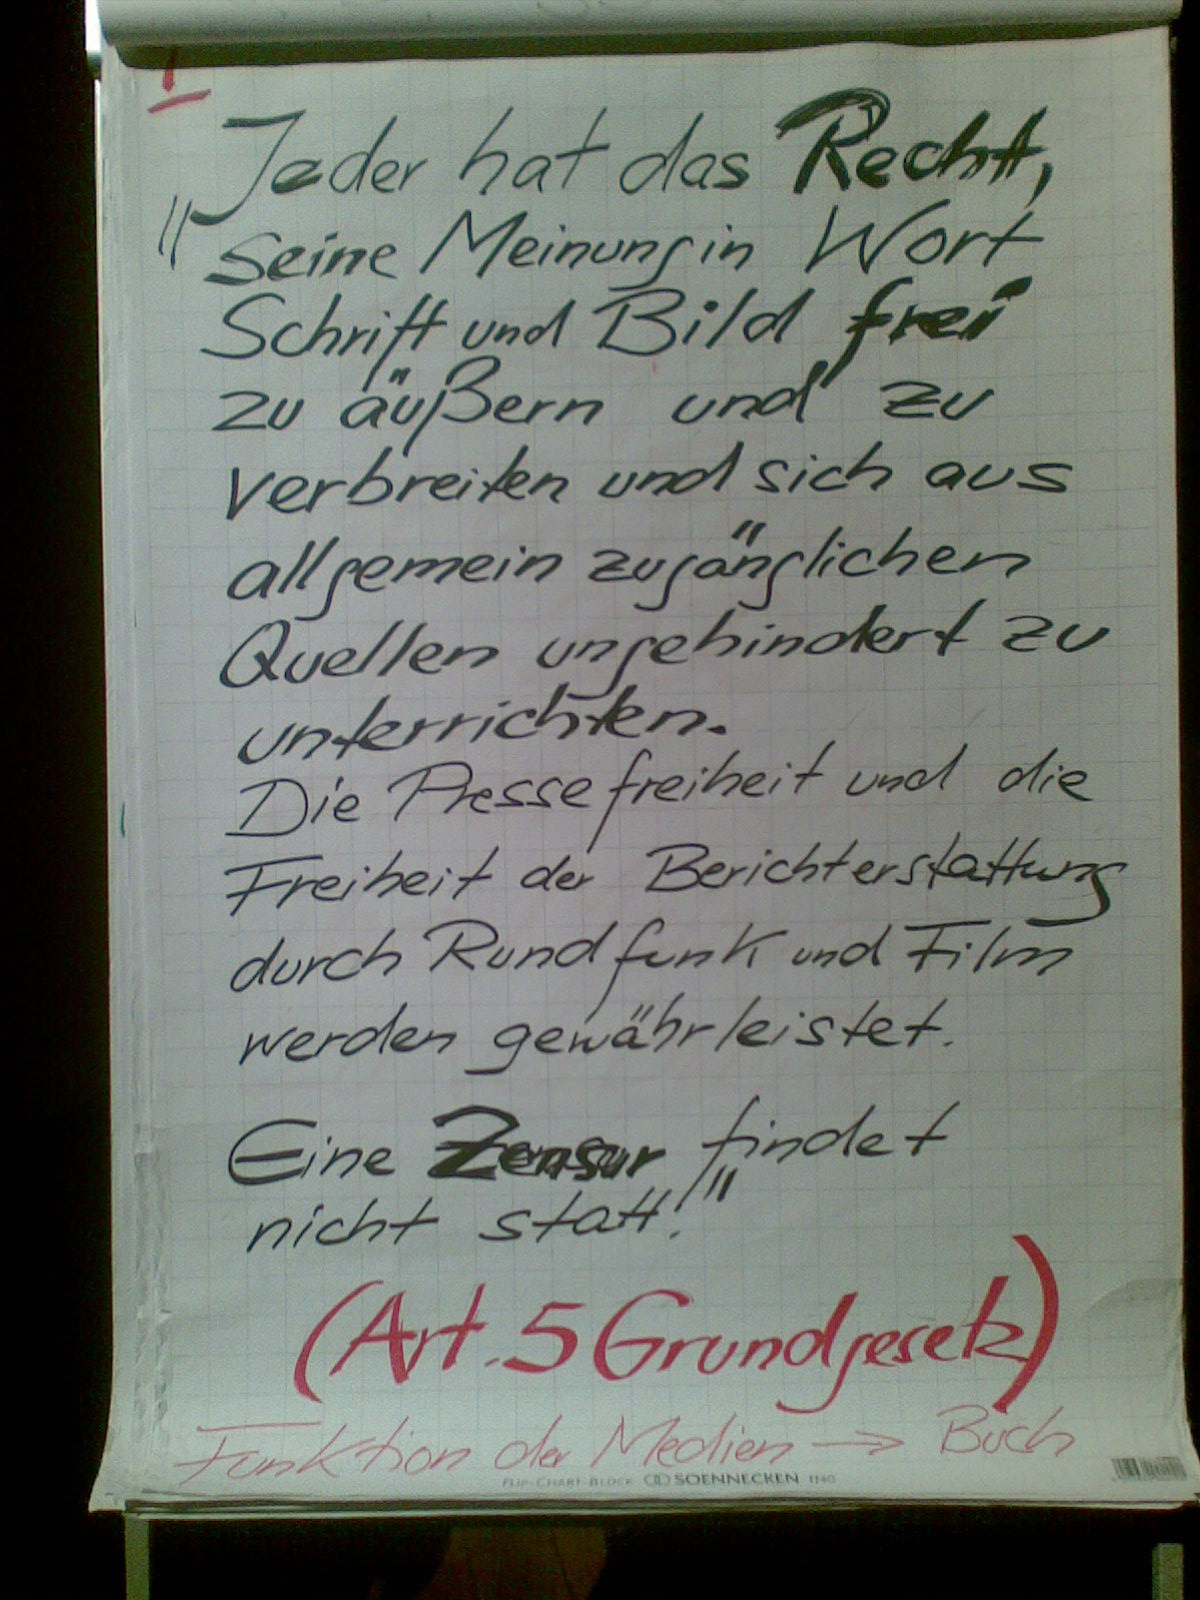 1
„Jeder hat das Recht,
seine Meinung in Wort
Schrift und Bild frei
zu äußern und zu
verbreiten und sich aus
allgemein zugänglichen
Quellen ungehindert zu
unterrichten.
Die Pressefreiheit und die
Freiheit der Berichterstattung
durch Rundfunk und Film
werden gewährleistet.
Eine Zensur findet
nicht statt!"
(Art. 5 Grundgesetz)
Funktion der Medien → Buch
FLIP-CHART-BLOCK SOENNECKEN 1140